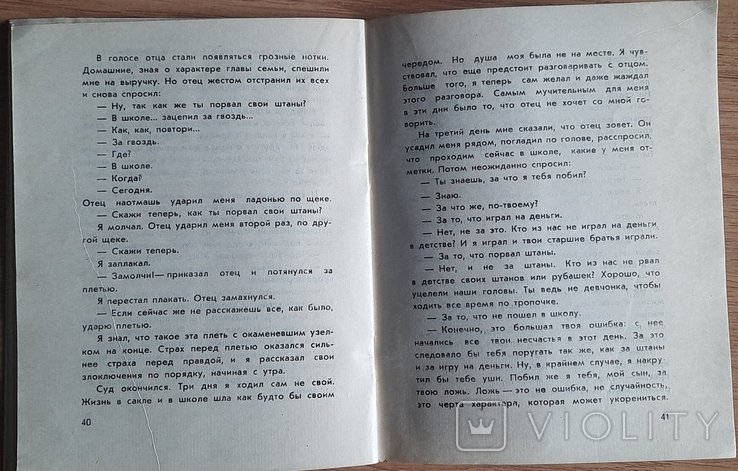 В голосе отца стали появляться грозные нотки.
Домашние, зная о характере главы семьи, спешили
мне на выручку. Но отец жестом отстранил их всех
и снова спросил:
— Ну, так как же ты порвал свои штаны?
— В школе... зацепил за гвоздь...
— Как, как, повтори...
— За гвоздь.
— Где?
— В школе.
— Когда?
— Сегодня.
Отец наотмашь ударил меня ладонью по щеке.
— Скажи теперь, как ты порвал свои штаны?
Я молчал. Отец ударил меня второй раз, по дру-
гой щеке.
— Скажи теперь.
Я заплакал.
— Замолчи!— приказал отец и потянулся за
плетью.
Я перестал плакать. Отец замахнулся.
— Если сейчас же не расскажешь все, как было,
ударю плетью.
Я знал, что такое эта плеть с окаменевшим узел-
ком на конце. Страх перед плетью оказался силь-
нее страха перед правдой, и я рассказал свои
злоключения по порядку, начиная с утра.
Суд окончился. Три дня я ходил сам не свой.
Жизнь в сакле и в школе шла как будто бы своим
40
чередом. Но душа моя была не на месте. Я чув-
ствовал, что еще предстоит разговаривать с отцом.
Больше того, я теперь сам желал и даже жаждал
этого разговора. Самым мучительным для меня
в эти дни было то, что отец не хочет со мной го-
ворить.
На третий день мне сказали, что отец зовет. Он
усадил меня рядом, погладил по голове, расспросил,
что проходим сейчас в школе, какие у меня от-
метки. Потом неожиданно спросил:
— Ты знаешь, за что я тебя побил?
— Знаю.
— За что же, по-твоему?
— За то, что играл на деньги.
— Нет, не за это. Кто из нас не играл на деньги
в детстве? И я играл и твои старшие братья играли.
— За то, что порвал штаны.
— Нет, и не за штаны. Кто из нас не рвал
в детстве своих штанов или рубашек? Хорошо, что
уцелели наши головы. Ты ведь не девчонка, чтобы
ходить все время по тропочке.
— За то, что не пошел в школу.
— Конечно, это большая твоя ошибка: с нее
начались все твои несчастья в этот день. За это
следовало бы тебя поругать так же, как за штаны
и за игру на деньги. Ну, в крайнем случае, я накру-
тил бы тебе уши. Побил же я тебя, мой сын, за
твою ложь. Ложь — это не ошибка, не случайность,
это черта характера, которая может укорениться.
41
VIOLITY